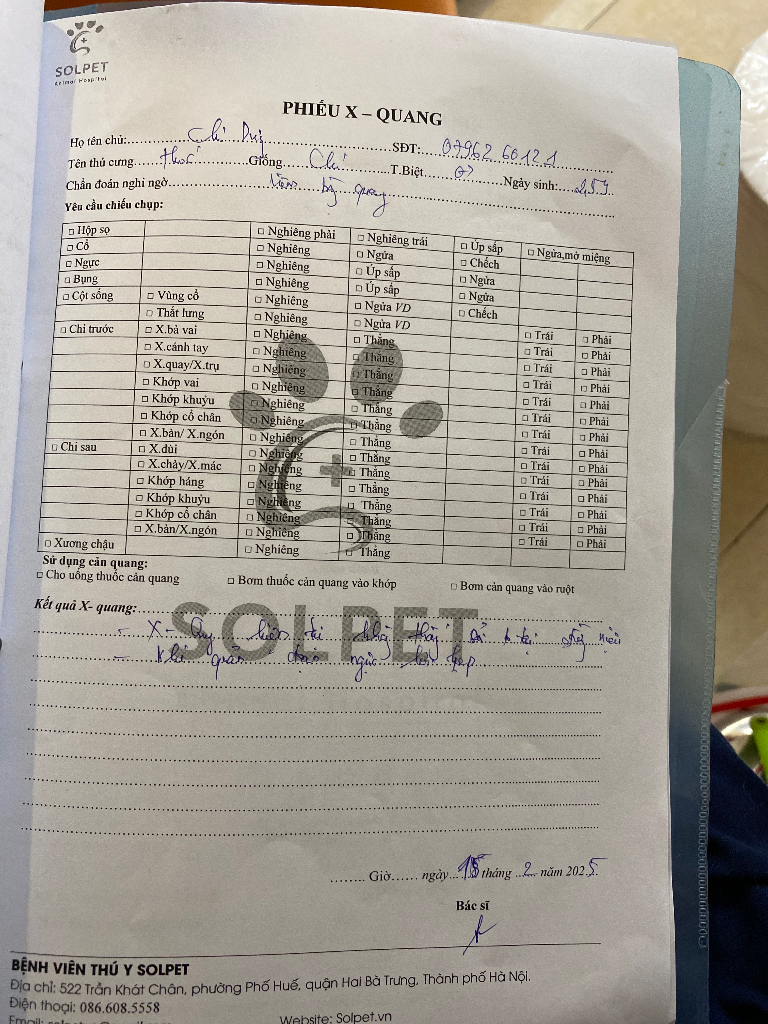 SOLPET
Animal Hospital
PHIẾU X – QUANG
Họ tên chủ: Chị Duy SĐT: 07962 60121
Tên thú cưng Giống Chó T.Biệt Ngày sinh: 2,5
Chẩn đoán nghi ngờ bàng quang
Yêu cầu chiếu chụp:
□ Hộp sọ □ Nghiêng phải □ Nghiêng trái □ Úp sấp □ Ngửa,mở miệng
□ Cổ □ Nghiêng □ Ngửa □ Chếch
□ Ngực □ Nghiêng □ Úp sấp □ Ngửa
□ Bụng □ Nghiêng □ Úp sấp □ Ngửa
□ Cột sống □ Vùng cổ □ Nghiêng □ Ngửa VD □ Chếch
□ Thắt lưng □ Nghiêng □ Ngửa VD
□ Chi trước □ X.bả vai □ Nghiêng □ Thẳng □ Trái □ Phải
□ X.cánh tay □ Nghiêng □ Thẳng □ Trái □ Phải
□ X.quay/X.trụ □ Nghiêng □ Thẳng □ Trái □ Phải
□ Khớp vai □ Nghiêng □ Thẳng □ Trái □ Phải
□ Khớp khuỷu □ Nghiêng □ Thẳng □ Trái □ Phải
□ Khớp cổ chân □ Nghiêng □ Thẳng □ Trái □ Phải
□ X.bàn/ X.ngón □ Nghiêng □ Thẳng □ Trái □ Phải
□ Chi sau □ X.đùi □ Nghiêng □ Thẳng □ Trái □ Phải
□ X.chày/X.mác □ Nghiêng □ Thẳng □ Trái □ Phải
□ Khớp háng □ Nghiêng □ Thẳng □ Trái □ Phải
□ Khớp khuỷu □ Nghiêng □ Thẳng □ Trái □ Phải
□ Khớp cổ chân □ Nghiêng □ Thẳng □ Trái □ Phải
□ X.bàn/X.ngón □ Nghiêng □ Thẳng □ Trái □ Phải
□ Xương chậu □ Nghiêng □ Thẳng
Sử dụng cản quang:
□ Cho uống thuốc cản quang □ Bơm thuốc cản quang vào khớp □ Bơm cản quang vào ruột
Kết quả X- quang:
- X-Quang hiện tại không thấy sỏi
- Khí quản đoạn ngực hẹp
SOLPET
Giờ ngày 15 tháng 2 năm 2025
Bác sĩ
BỆNH VIỆN THÚ Y SOLPET
Địa chỉ: 522 Trần Khát Chân, phường Phố Huế, quận Hai Bà Trưng, Thành phố Hà Nội.
Điện thoại: 086.608.5558
Email: Website: Solpet.vn